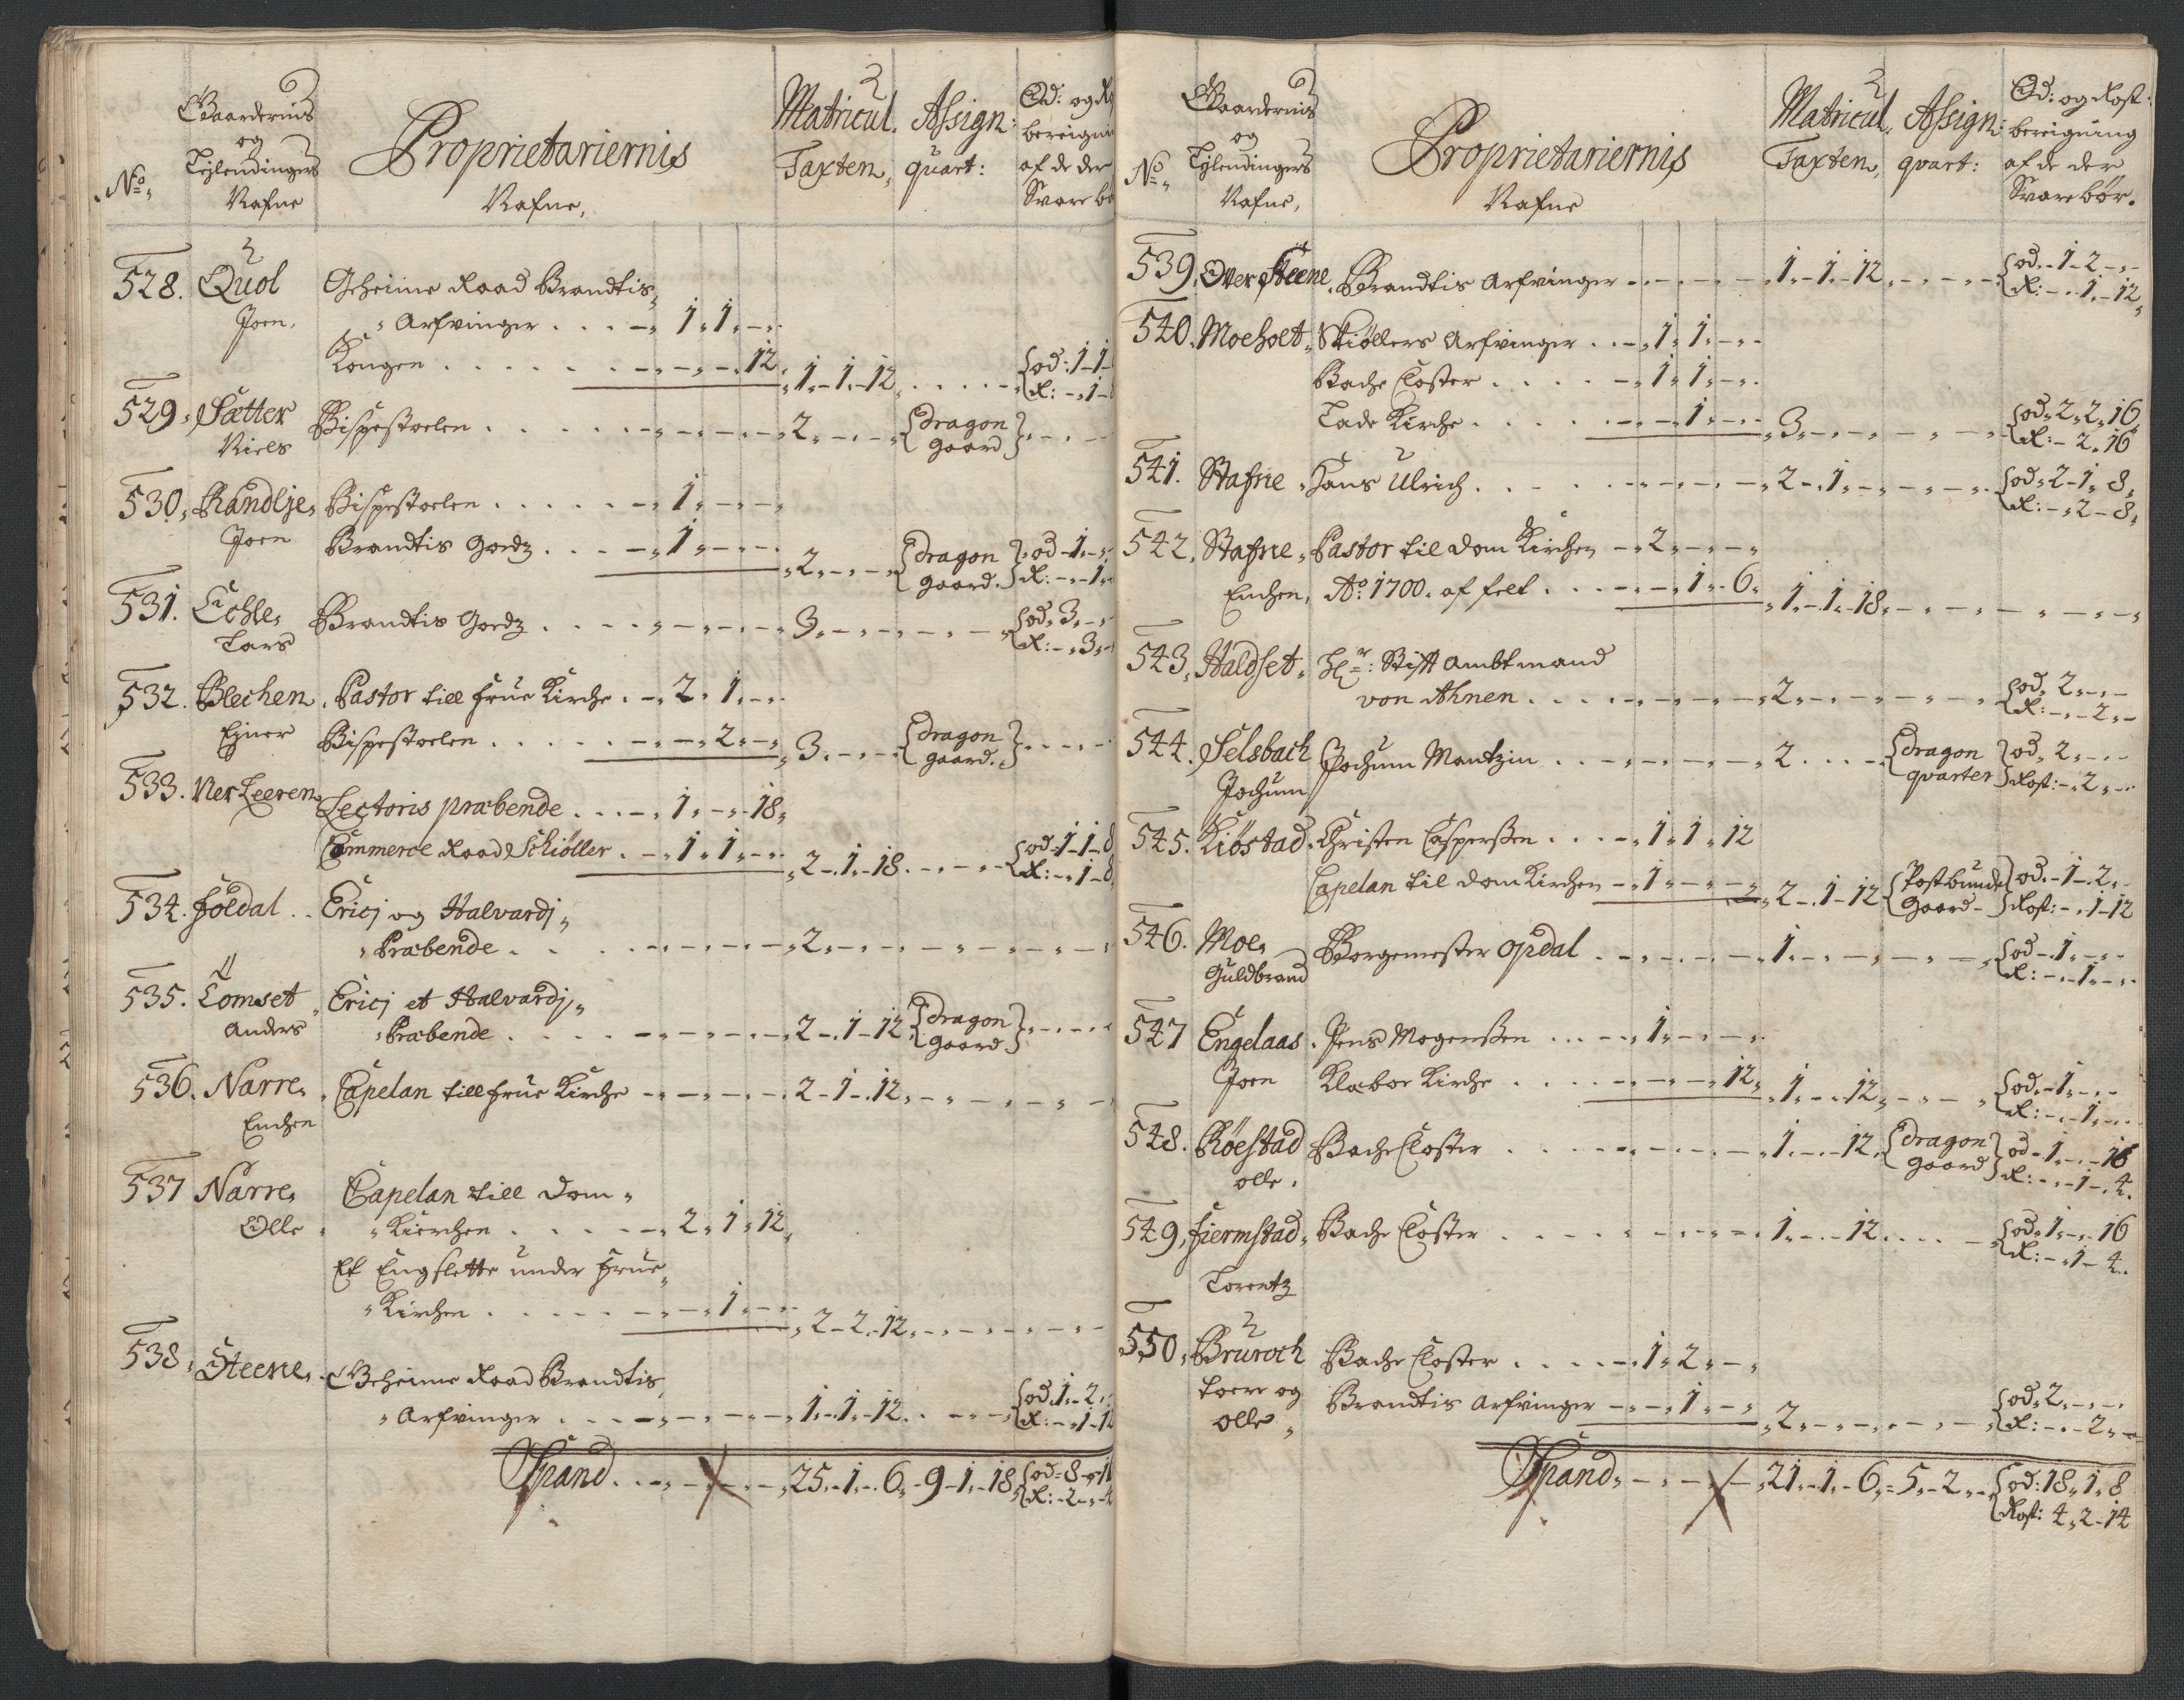 No.
Gaardernis
og
Tijlendingers
Nafne
Proprietariernis
Nafne,
Matricul.
Taxten,
Assign:
quart:
Od: og
bereigni
af de der
Svare bø
528. Quol Geheime Raad Brandtis
Joen. Arfvinger . . . - 1. 1. - -
Kongen . . . . - - - 12. 1. - 1. - 12. {od: 1 - 1
R: - . 1 -
529. Sætter Bispestoelen . . . . 2. - . - {dragon gaard}
Niels
530. Randlje, Bispestoelen . . . . - 1. - . -
Joen Brandtis Godz . . . - 1. - . - 2. - . - {dragon gaard.} od - 1. -
R: - . - 1.
531. Lohle, Brandtis Godz . . . . 3. - . - {od. 3. -
Lars R: - . 3. -
532. Blechen. Pastor till frue Kirche . - 2. 1. - .
Ejner Bispestoelen . . . . - . - 2. - 3. - . - {dragon gaard.}
533. Ner Leeren. Lectoris præbende . . . - 1. - . - 18.
Commerce Raad Schiøller . - 1. 1. - . 2 - . 1. - 18. {od - 1 - 1 - 8
R: - . 1 - 8
534. foldal . . Ericj og Halvardj
Præbende . . . 2. - . -
535. Lomset Ericj et Halvardj,
Anders Præbende . . . 2 - . 1 - 12 {dragon gaard}
536. Narre, Capelan till frue Kirche - . - 2 - 1 - . 12.
Enchen
537 Narre, Capelan till Dom
Olle Kirchen . . . . - 2. 1. 12.
Et Engslette under Frue
Kirchen . . . . - . - . 1. - . 2 - 2. - 12.
538. Steene, Geheime Raad Brandtis
Arfvinger . . . 1. - . 1. - 12. {od. 1. - 2.
R: - . 1 - 12
Spand . . . 25. - 1. - . 6. - 9 - 1. - 18. {od = 8 -
R: - 2 -
No.
Gaardernis
og
Tijlendingers
Nafne,
Proprietariernis
Nafne
Matricul,
Taxten,
Assign:
qvart:
Od: og Rost:
bereigning
af de der
Svare bør.
539. Over Steene, Brandtis Arfvinger . - . - 1. - 1. - 12. {od. - 1 - 2. - .
R: - . 1. - 12.
540. Moeholt, Skiøllers Arfvinger . . - 1. 1. - .
Bache Closter . . . . - 1. 1. - .
Lade Kirche . . . . - . - 1. - . 3. - . - {od. 2. 2. 16.
R: - 2. 16
541. Stafne Hans Ulrich . . . 2 - . 1. - . {od. 2 - 1. 8.
R: - . 2 - 8.
542. Stafne, Pastor til Dom Kirchen - . 2. - . -
Enchen, Ao: 1700. af felt . . . - . - 1. . 6. 1. - 1. 18.
543. Haldset, Hr: Stifft Ambtmand
von Ahnen . . . 2. - . - {od. 2. - . -
R: - . - 2. -
544. Selsbach Jochum Mantzin . . . 2 . . . {dragon qvarter} od. 2. - . -
Jochum Rost: - . 2. - .
545. Kiøstad. Christen Casperssen . . . - 1. 1. 12
Capelan til Dom Kirchen - . 1. - . - 2 - . 1 - 12 {Postbunde Gaard -} od. - 1 - . 2. -
Rost: - . 1 - 12
546. Moe, Borgemester Opdal . - . - 1. - . - {od - . 1. - . -
Guldbrand R: - . - 1. - .
547 Engelaas. Jens Mogenssen . . . - . 1. - . -
Joen Klæboe Kirche . . . . - . - . 12. 1. - . 12. {od. - 1. - . -
R: - . - 1. - .
548. Røestad Bache Closter . . . 1. - . - 12. {dragon gaard} od - 1. - . 16
olle. R: - . - 1 - . 4.
549. fiermstad, Bache Closter . . . 1. - . - 12. {od. 1. - . 16
Lorentz R: - . 1 - 4.
550. Bruroch Bache Closter . . . . - 1. 2. - .
Toere og Brandtis Arfvinger - . - 1. - . {od. 2. - . -
olle 2. - . - R: - . - 2. -
Spand. - . - 21. - 1. - 6. = 5. - 2. {od: 18. 1. 8
Rost: 4. 2 - 14